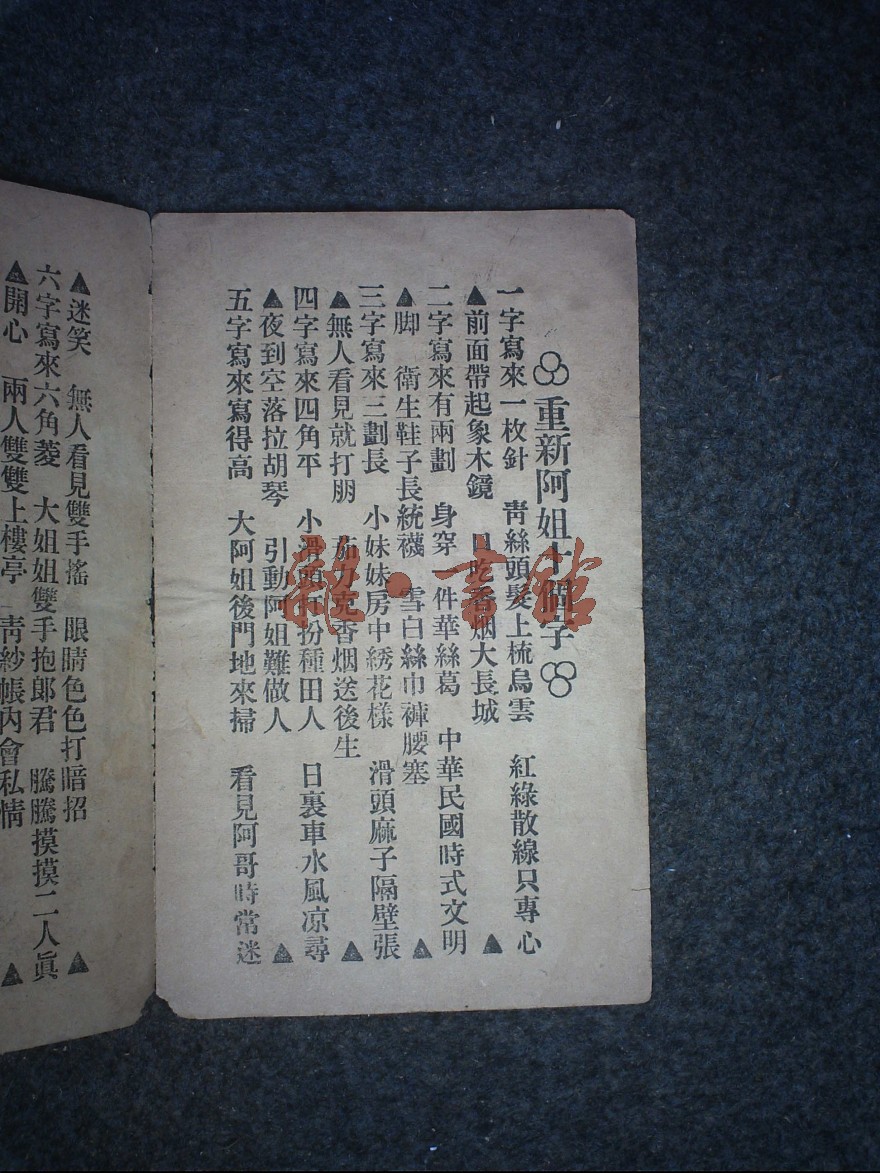 重新阿姐十個字
一字寫來一枚針 靑絲頭髮上梳烏雲 紅綠散線只專心
▲前面帶起象木鏡 口吃香烟大長城 ▲
二字寫來有兩劃 身穿一件華絲葛 中華民國時式文明
▲脚 衛生鞋子長統襪 雪白絲巾褲腰塞 ▲
三字寫來三劃長 小妹妹房中綉花樣 滑頭麻子隔壁張
▲無人看見就打朋 茄力克香烟送後生 ▲
四字寫來四角平 小滑頭打扮種田人 日裏車水風凉尋
▲夜到空落拉胡琴 引動阿姐難做人 ▲
五字寫來寫得高 大阿姐後門地來掃 看見阿哥時常迷
▲迷笑 無人看見雙手搖 眼睛色色打暗招 ▲
六字寫來六角菱 大姐姐雙手抱郞君 騰騰摸摸二人眞
▲開心 兩人雙雙上樓亭 靑紗帳內會私情 ▲
雜·書館